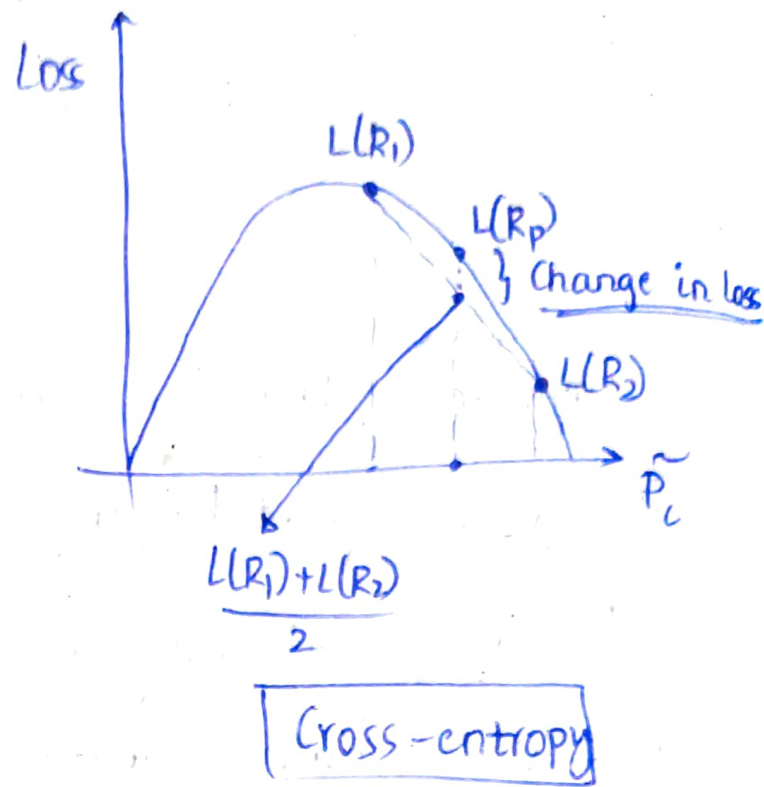 Loss
L(R₁)
L(Rₚ)
} Change in loss
L(R₂)
P̃c
L(R₁)+L(R₂)
2
Cross-entropy